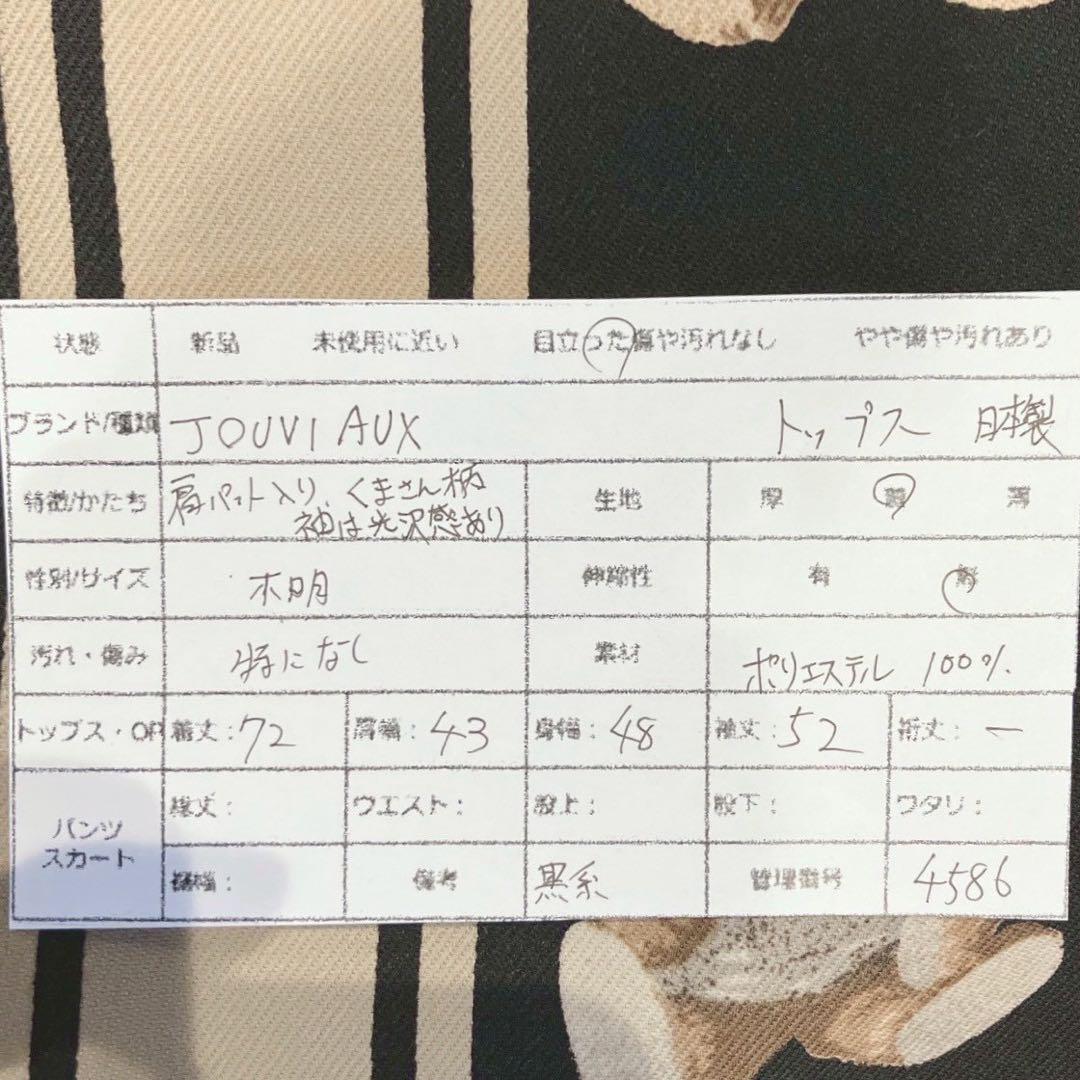 状態 新品 未使用に近い 目立った傷や汚れなし やや傷や汚れあり
ブランド/種類 JOUVIAUX トップス 日本製
特徴/かたち 肩パット入り、くまさん柄
袖は光沢感あり
生地 厚 普 薄
性別/サイズ 不明 伸縮性 有 無
汚れ・傷み 特になし 素材 ポリエステル 100%
トップス・OP 着丈:72 肩幅:43 身幅:48 袖丈:52 裄丈:ー
パンツ
スカート
総丈: ウエスト: 股上: 股下: ワタリ:
裾幅: 備考 黒系 管理番号 4586